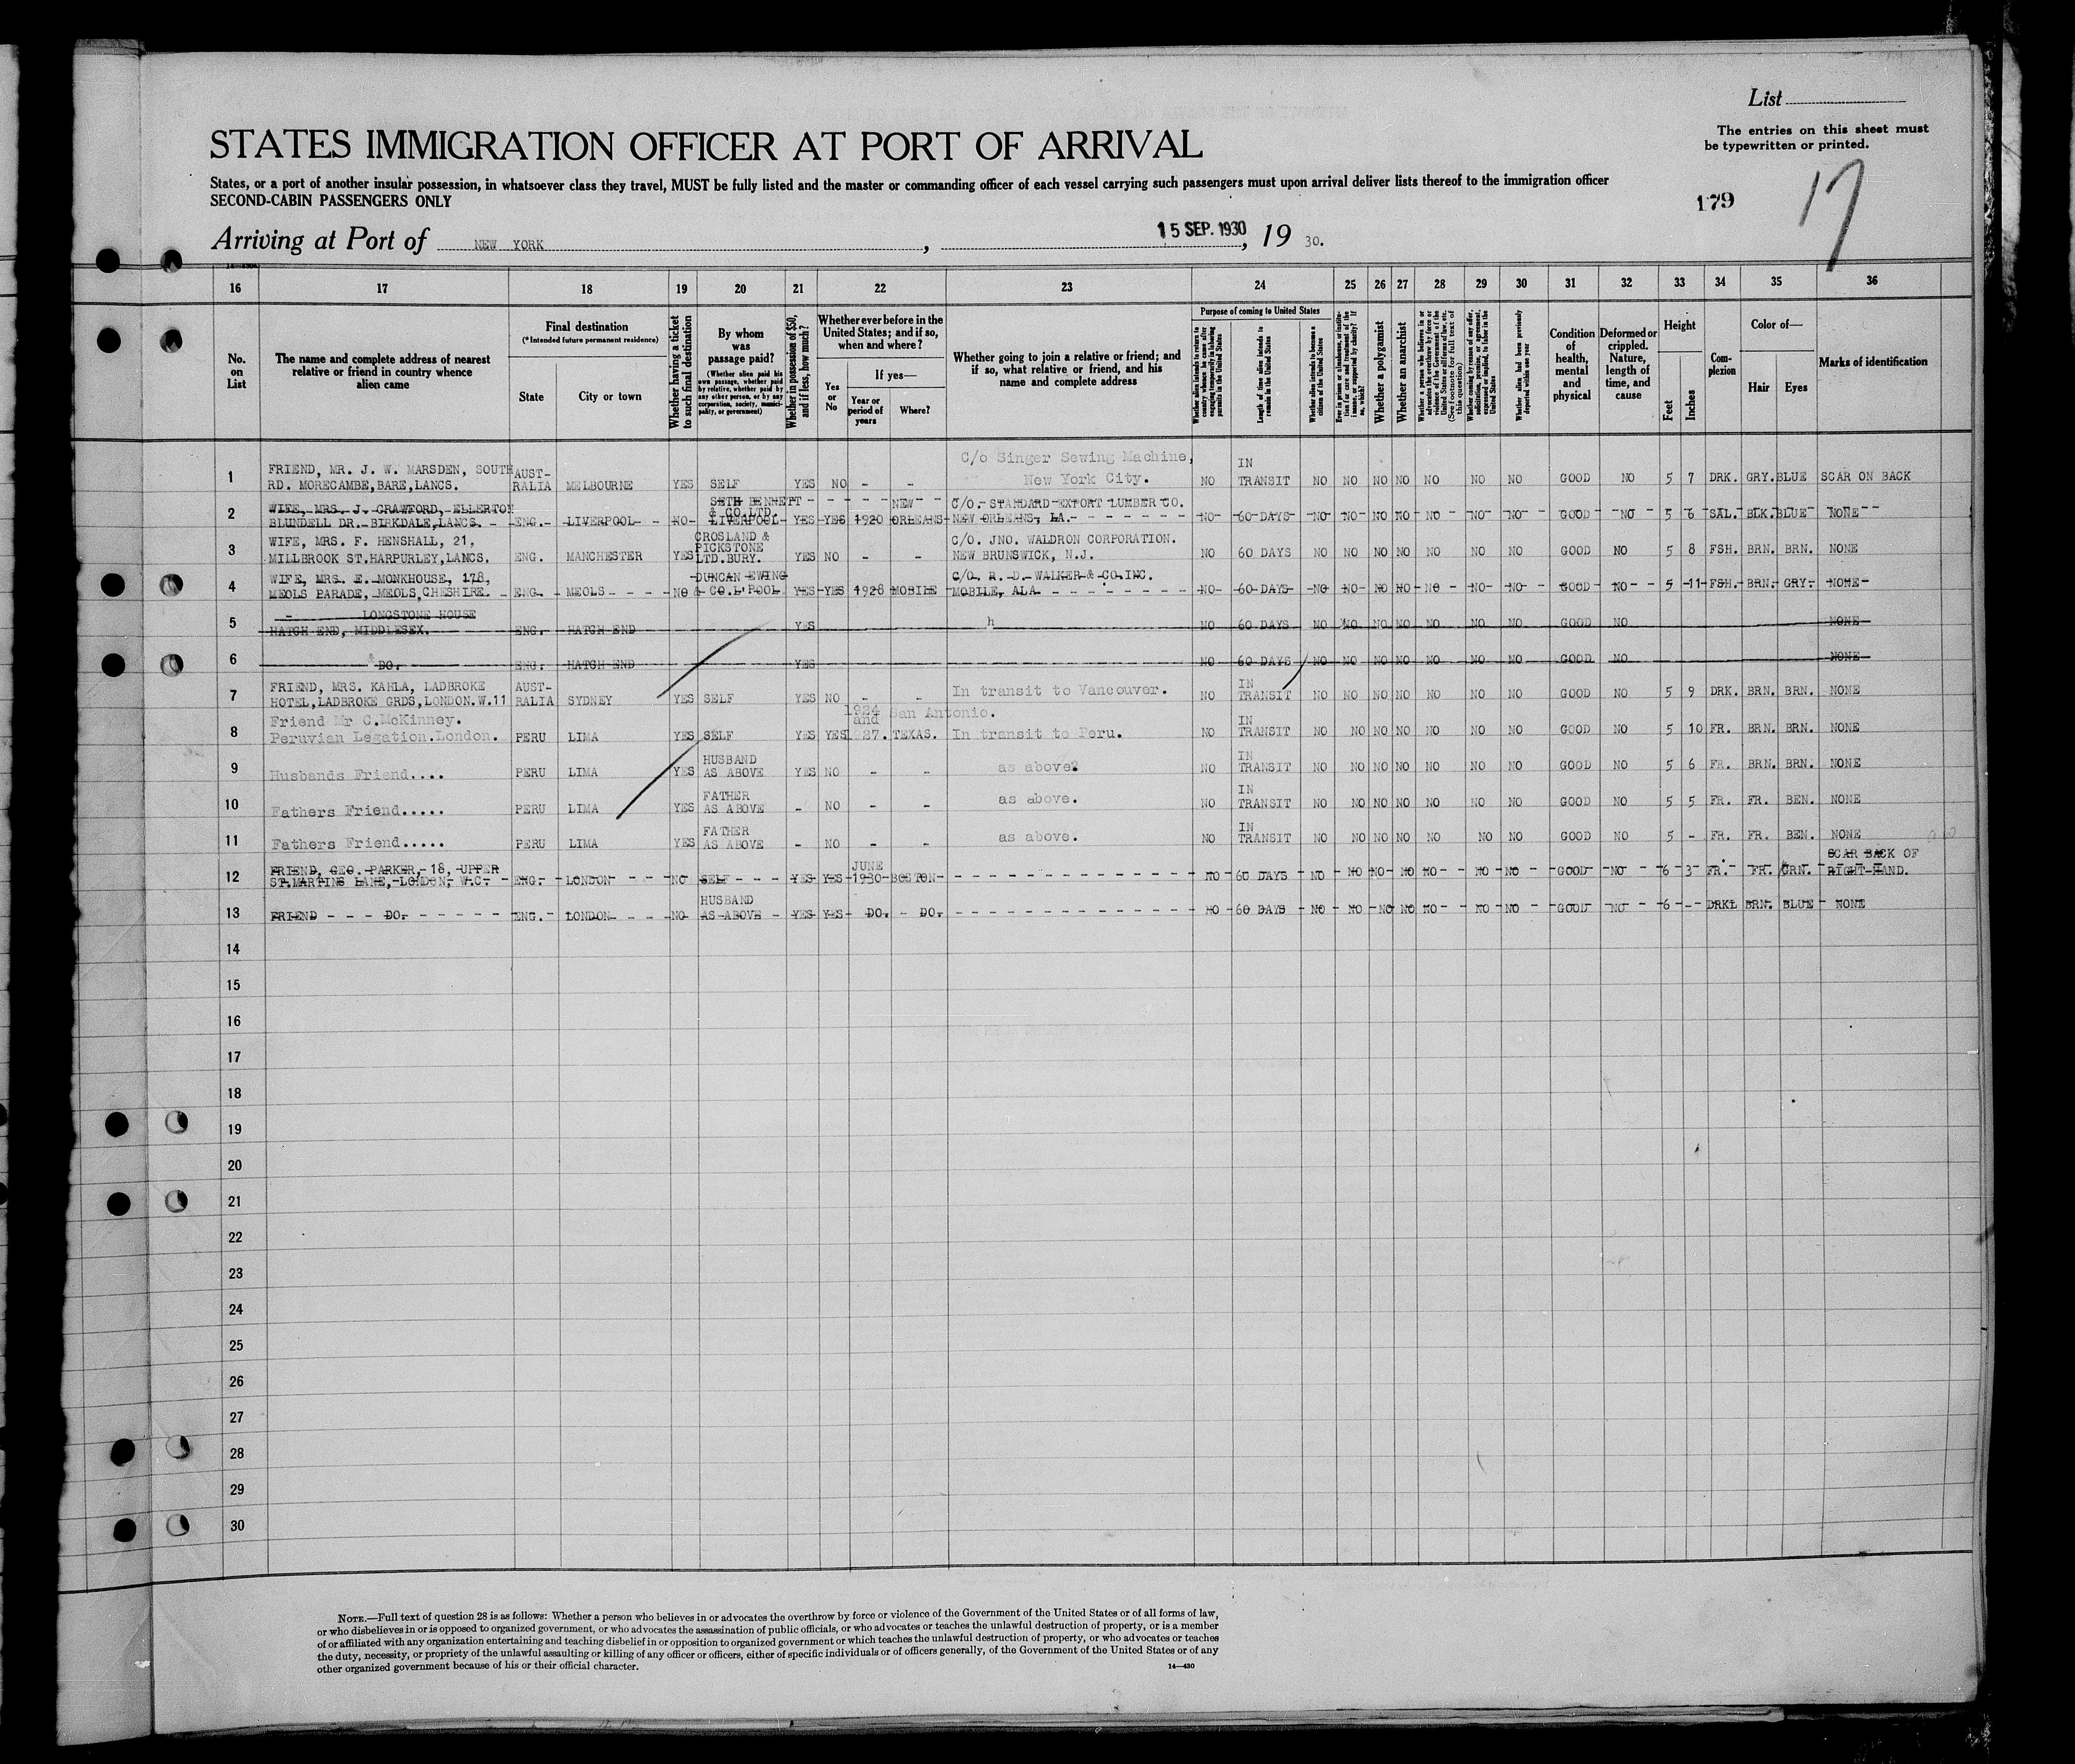 List
The entries on this sheet must
be typewritten or printed.
STATES IMMIGRATION OFFICER AT PORT OF ARRIVAL
States, or a port of another insular possession, in whatsoever class they travel, MUST be fully listed and the master or commanding officer of each vessel carrying such passengers must upon arrival deliver lists thereof to the immigration officer
SECOND-CABIN PASSENGERS ONLY
179 17
Arriving at Port of NEW YORK, 15 SEP. 1930, 19 30.
16 17 18 19 20 21 22 23 24 25 26 27 28 29 30 31 32 33 34 35 36
No. on List
The name and complete address of nearest relative or friend in country whence alien came
Final destination
(* Intended future permanent residence)
State City or town
Whether having a ticket to such final destination
By whom was passage paid?
(Whether alien paid his own passage, whether paid by relative, whether paid by any other person, or by any corporation, society, municipality, or government)
Whether in possession of $50, and if less, how much?
Whether ever before in the United States; and if so, when and where?
Yes or No
If yes—
Year or period of years Where?
Whether going to join a relative or friend; and if so, what relative or friend, and his name and complete address
Purpose of coming to United States
Whether alien intends to return to country whence he came after engaging temporarily in laboring pursuits in the United States
Length of time alien intends to remain in the United States
Whether alien intends to become a citizen of the United States
Ever in prison or almshouse, or institution for care and treatment of the insane, or supported by charity? If so, which?
Whether a polygamist
Whether an anarchist
Whether a person who believes in or advocates the overthrow by force or violence of the Government of the United States or all forms of law, etc. (See footnote for full text of this question)
Whether coming by reason of any offer, solicitation, promise, or agreement, expressed or implied, to labor in the United States
Whether alien had been previously deported within one year
Condition of health, mental and physical
Deformed or crippled. Nature, length of time, and cause
Height
Feet Inches
Complexion
Color of—
Hair Eyes
Marks of identification
1 FRIEND, MR. J. W. MARSDEN, SOUTH AUST- C/o Singer Sewing Machine, IN
RD. MORECAMBE,BARE,LANCS. RALIA MELBOURNE YES SELF YES NO - - New York City. NO TRANSIT NO NO NO NO NO NO NO GOOD NO 5 7 DRK. GRY. BLUE SCAR ON BACK
2 WIFE, MRS. J. CRAWFORD, ELLERTON SETH BENNETT & CO.LTD. NEW C/O. STANDARD EXPORT LUMBER CO.
BLUNDELL DR. BIRKDALE,LANCS. ENG. LIVERPOOL NO LIVERPOOL YES YES 1920 ORLEANS NEW ORLEANS, LA. NO 60 DAYS NO NO NO NO NO NO NO GOOD NO 5 6 SAL. BLK. BLUE NONE
3 WIFE, MRS. F. HENSHALL, 21, CROSLAND & PICKSTONE C/O. JNO. WALDRON CORPORATION.
MILLBROOK ST.HARPURLEY,LANCS. ENG. MANCHESTER YES LTD.BURY. YES NO - - NEW BRUNSWICK, N.J. NO 60 DAYS NO NO NO NO NO NO NO GOOD NO 5 8 FSH. BRN. BRN. NONE
4 WIFE, MRS. E. MONKHOUSE, 178, DUNCAN EWING C/O. R. D. WALKER & CO.INC.
MEOLS PARADE, MEOLS,CHESHIRE. ENG. MEOLS NO & CO.L'POOL YES YES 1928 MOBILE MOBILE, ALA. NO 60 DAYS NO NO NO NO NO NO NO GOOD NO 5 11 FSH. BRN. GRY. NONE
5 - LONGSTONE HOUSE
HATCH END, MIDDLESEX. ENG. HATCH END YES h NO 60 DAYS NO NO NO NO NO NO NO GOOD NO NONE
6 DO. ENG. HATCH END YES NO 60 DAYS NO NO NO NO NO NO NO GOOD NO NONE
7 FRIEND, MRS. KAHLA, LADBROKE AUST- IN
HOTEL,LADBROKE GRDS,LONDON.W.11 RALIA SYDNEY YES SELF YES NO - - In transit to Vancouver. NO TRANSIT NO NO NO NO NO NO NO GOOD NO 5 9 DRK. BRN. BRN. NONE
8 Friend Mr C.McKinney. 1924 and San Antonio. IN
Peruvian Legation.London. PERU LIMA YES SELF YES YES 1927. TEXAS. In transit to Peru. NO TRANSIT NO NO NO NO NO NO NO GOOD NO 5 10 FR. BRN. BRN. NONE
9 HUSBAND IN
Husbands Friend.... PERU LIMA YES AS ABOVE YES NO - - as above. NO TRANSIT NO NO NO NO NO NO NO GOOD NO 5 6 FR. BRN. BRN. NONE
10 FATHER IN
Fathers Friend..... PERU LIMA YES AS ABOVE - NO - - as above. NO TRANSIT NO NO NO NO NO NO NO GOOD NO 5 5 FR. FR. BEN. NONE
11 FATHER IN
Fathers Friend..... PERU LIMA YES AS ABOVE - NO - - as above. NO TRANSIT NO NO NO NO NO NO NO GOOD NO 5 - FR. FR. BEN. NONE
12 FRIEND, GEO. PARKER, 18, UPPER JUNE SCAR BACK OF
ST.MARTINS LANE, LONDON, W.C. ENG. LONDON NO SELF YES YES 1930 BOSTON NO 60 DAYS NO NO NO NO NO NO NO GOOD NO 6 3 FR. FR. GRN. RIGHT HAND.
13 HUSBAND
FRIEND DO. ENG. LONDON NO AS ABOVE YES YES DO. DO. NO 60 DAYS NO NO NO NO NO NO NO GOOD NO 6 - DRK. BRN. BLUE NONE
14
15
16
17
18
19
20
21
22
23
24
25
26
27
28
29
30
NOTE.—Full text of question 28 is as follows: Whether a person who believes in or advocates the overthrow by force or violence of the Government of the United States or of all forms of law,
or who disbelieves in or is opposed to organized government, or who advocates the assassination of public officials, or who advocates or teaches the unlawful destruction of property, or is a member
of or affiliated with any organization entertaining and teaching disbelief in or opposition to organized government or which teaches the unlawful destruction of property, or who advocates or teaches
the duty, necessity, or propriety of the unlawful assaulting or killing of any officer or officers, either of specific individuals or of officers generally, of the Government of the United States or of any
other organized government because of his or their official character.
14—430